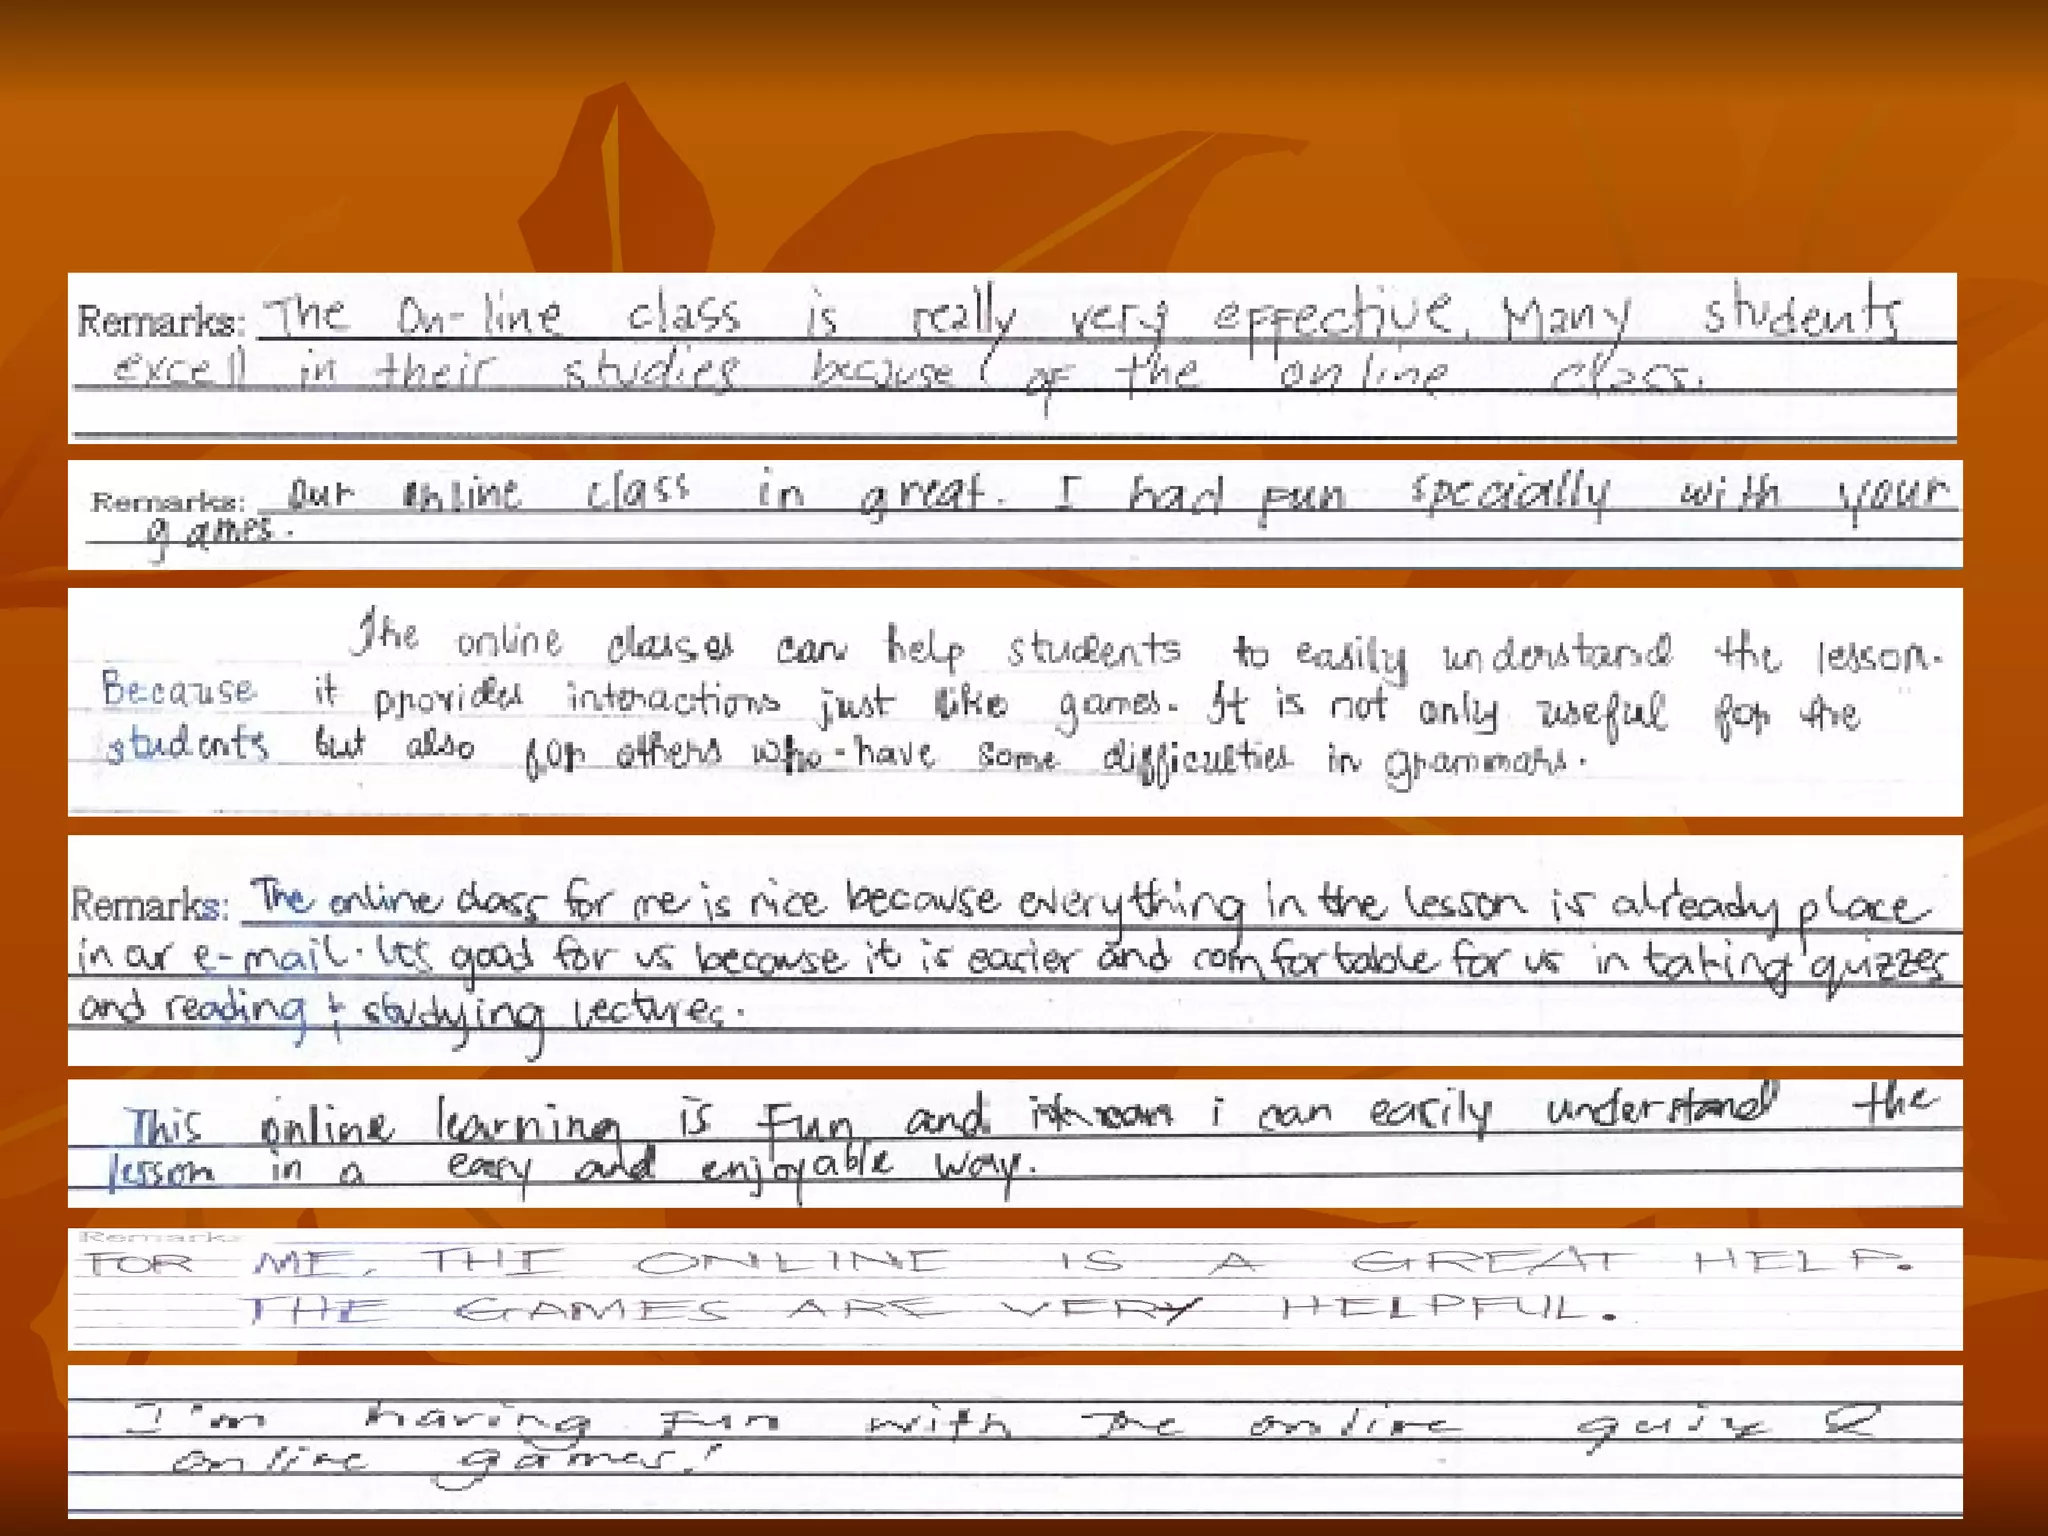 Remarks: The On-line class is really very effective. Many students
excell in their studies because of the online class.
Remarks: Our online class in great. I had fun specially with your
games.
The online classes can help students to easily understand the lesson.
Because it provides interactions just like games. It is not only useful for the
students but also for others who have some difficulties in grammars.
Remarks: The online class for me is nice because everything in the lesson is already place
in our e-mail. It's good for us because it is easier and comfortable for us in taking quizzes
and reading & studying lectures.
This online learning is fun and i can easily understand the
lesson in a easy and enjoyable way.
Remarks
FOR ME, THE ONLINE IS A GREAT HELP.
THE GAMES ARE VERY HELPFUL.
I'm having fun with the online quiz &
online games!